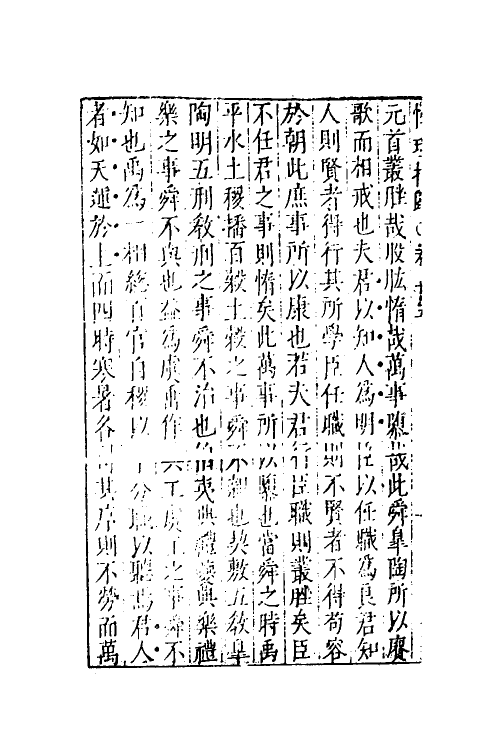 元首叢脞哉股肱惰哉萬事隳哉此舜皐陶所以賡
歌而相戒也夫君以知人爲明臣以任職爲良君知
人則賢者得行其所學臣任職則不賢者不得苟容
於朝此庶事所以康也若夫君行臣職則叢脞矣臣
不任君之事則惰矣此萬事所以隳也當舜之時禹
平水土稷播百穀土穀之事舜不親也契敷五敎皐
陶明五刑敎刑之事舜不治也伯夷典禮夔典樂禮
樂之事舜不與也益爲虞垂作共工虞工之事舜不
知也禹爲一相總百官自稷以下分職以聽焉君人
者如天運於上而四時寒暑各得其序則不勞而萬